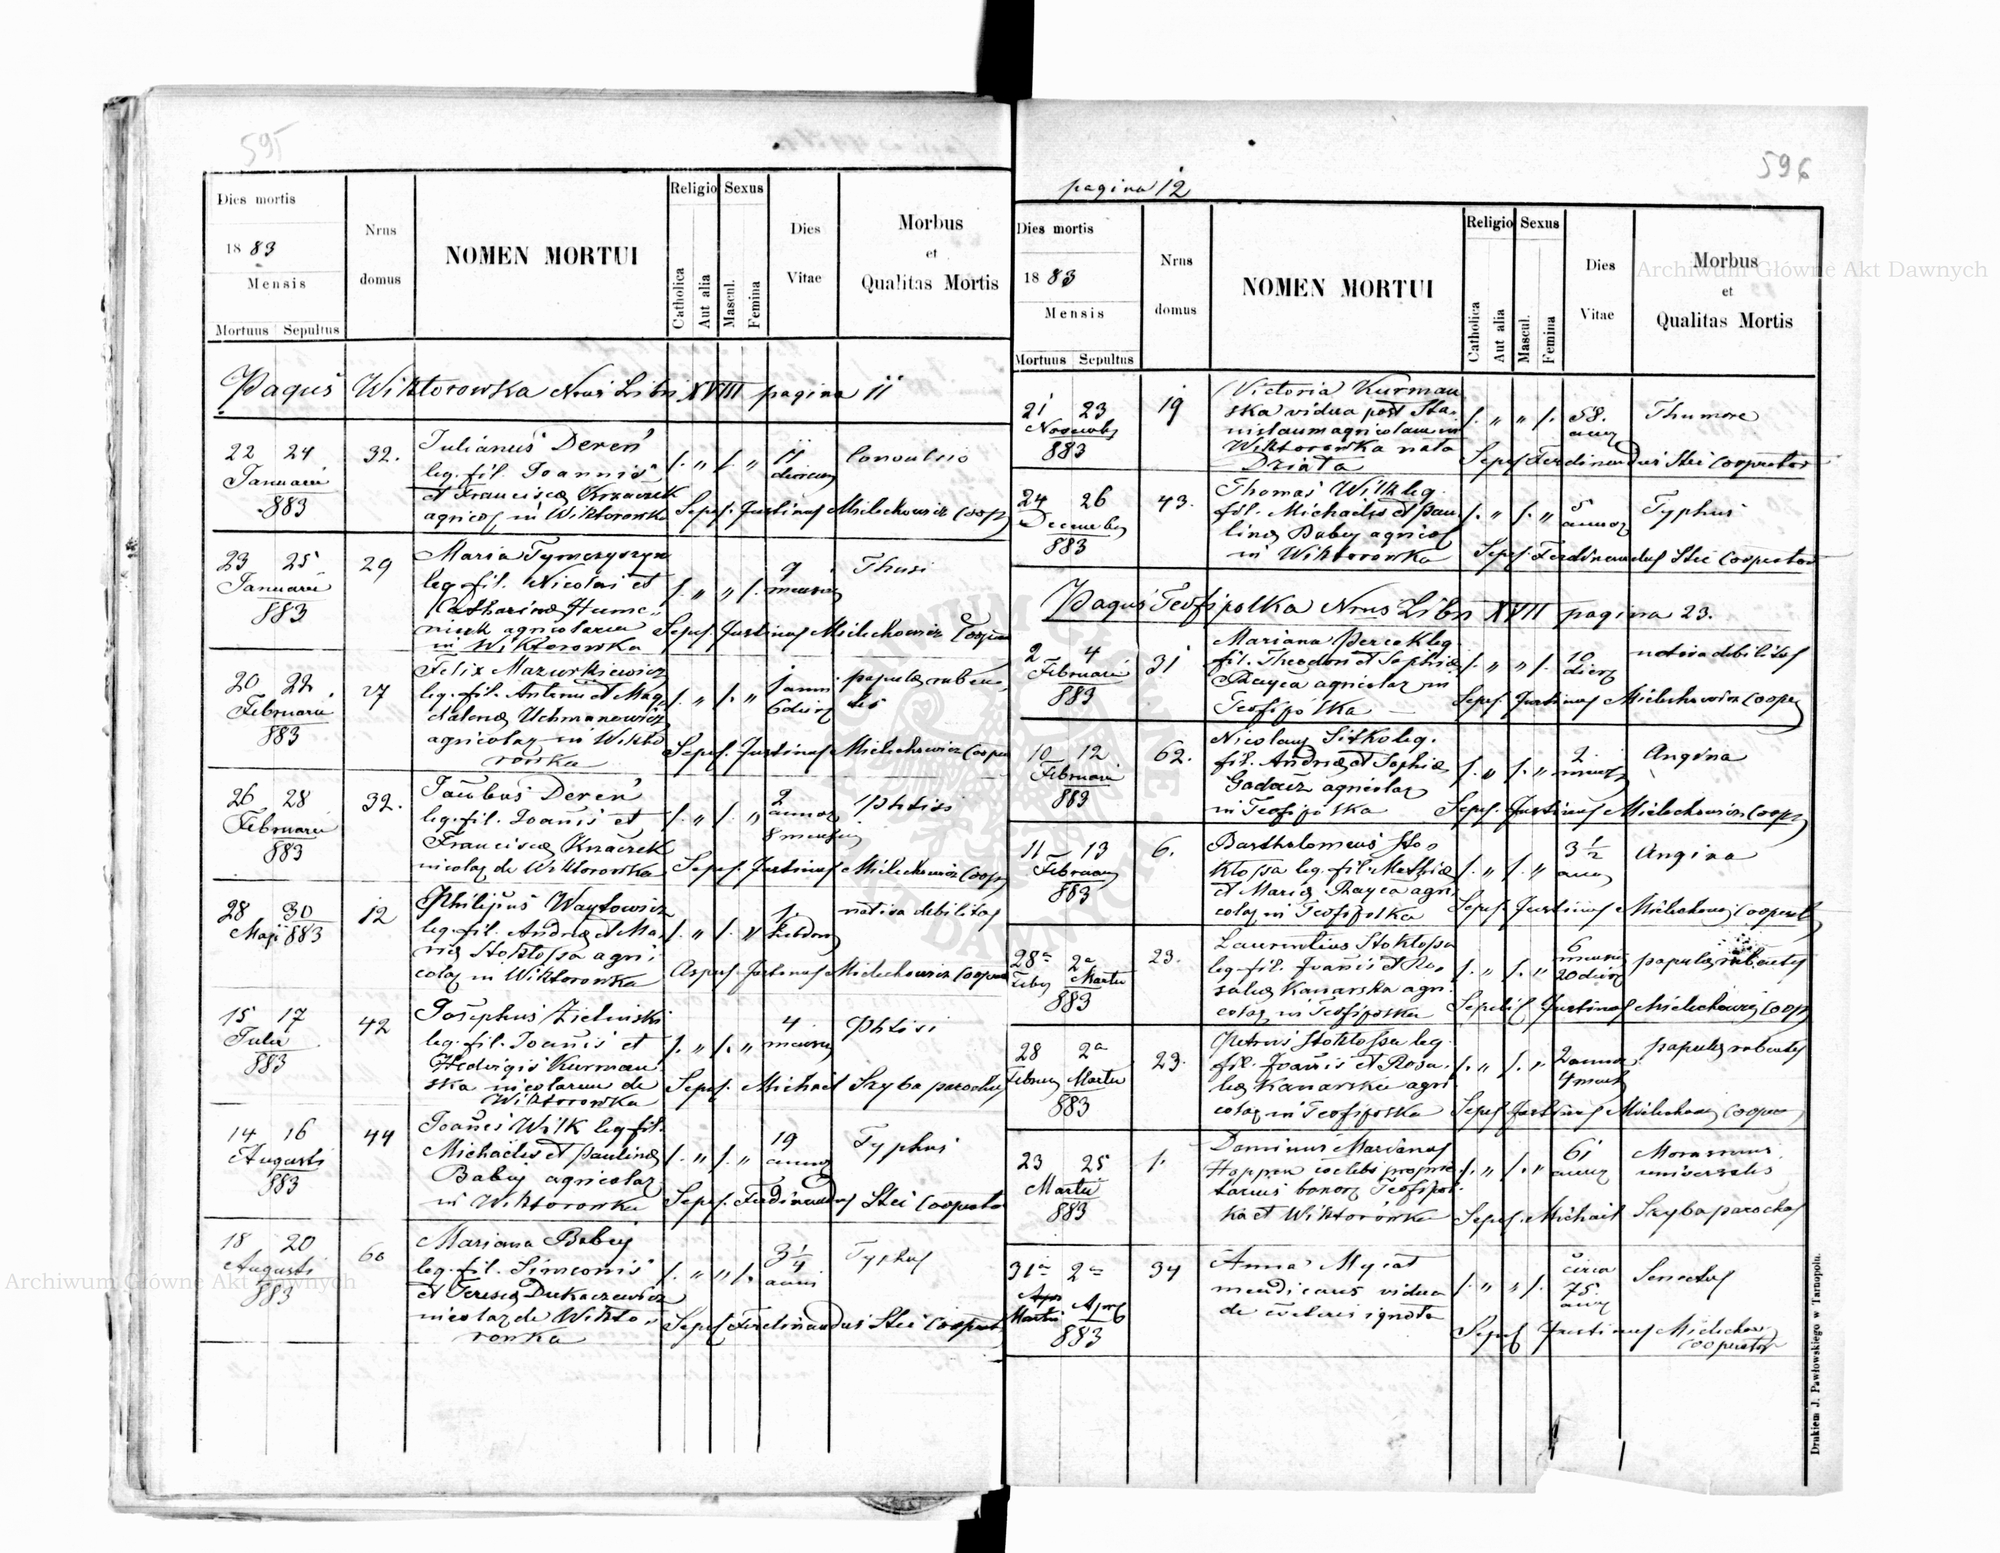 595
Dies mortis
1883
Mensis
Mortuus Sepultus
Nrus domus
NOMEN MORTUI
Religio
Catholica
Aut alia
Sexus
Mascul.
Femina
Dies Vitae
Morbus
et
Qualitas Mortis
Pagus Wiktorowka Nrus Libri XVIII pagina 11
22 24 Januarii 883
32.
Julianus Dereń
leg. fil. Joannis
et Francisca Krzaczek
agricol in Wiktorowka
11 dierum
Convulsio
Sepel. Justinus Mielechowicz Coop
23 25 Januarii 883
29
Maria Tymczyszyn
leg. fil. Nicolai et
Catharina Hume
niuk agricolarum
in Wiktorowka
9 mensium
Thusi
Sepel. Justinus Mielechowicz Coop
20 22 Februarii 883
27
Felix Mazurkiewicz
leg. fil. Antoni et Mag
dalena Uchmanowicz
agricolar in Wikto
rowka
1 anni 6 dier
papula ruben
tes
Sepel. Justinus Mielechowicz Coop
26 28 Februarii 883
32.
Jacobus Dereń
leg. fil. Joanis et
Francisca Krzaczek
ricolar de Wiktorowka
2 annor 8 mensium
Phtisi
Sepel. Justinus Mielechowicz Coop
28 30 Maji 883
12
Philipus Waytowicz
leg. fil. Andrea et Ma
ria Stoktossa agri
colar in Wiktorowka
1. hebdom
nativa debilitas
Justinus Mielechowicz Coop
15 17 Julii 883
42
Josephus Zielinski
leg. fil. Joanis et
Hedvigis Kurman
ska ricolarum de
Wiktorowka
4 mensium
Phtisi
Sepel. Michael Szyba parochus
14 16 Augusti 883
44
Joanes Wilk leg. fil.
Michaelis et Paulina
Babij agricolar
in Wiktorowka
19 annor
Typhus
Sepel. Ferdinandus Stei Cooperator
18 20 Augusti 883
60
Mariana Babij
leg. fil. Simeonis
et Teresia Dukaczewicz
ricolar de Wikto
rowka
3 1/4 anni
Typhus
Sepel Ferdinandus Stei Cooperat
596
pagina 12
Dies mortis
1883
Mensis
Mortuus Sepultus
Nrus domus
NOMEN MORTUI
Religio
Catholica
Aut alia
Sexus
Mascul.
Femina
Dies Vitae
Morbus
et
Qualitas Mortis
21 23 Novembr 883
19
Victoria Kurman
ska vidua post Sta
nislaum agricolam in
Wiktorowka nata
Dziata
58. annor
Thumore
Sepel Ferdinandus Stei Cooperator
24 26 Decembr 883
43.
Thomas Wilk leg.
fil. Michaelis et Pau
lina Babij agricol
in Wiktorowka
5 annor
Typhus
Sepel. Ferdinandus Stei Cooperator
Pagus Teofipolka Nrus Libri XVII pagina 23.
2 4 Februarii 883
31
Mariana leg
fil. Theodori et Sophia
Rayca agricolar in
Teofipolka
10 dier
nativa debilitas
Sepel. Justinus Mielechowicz Cooper
10 12 Februarii 883
62.
Nicolaus Sitko leg.
fil. Andrea et Sophia
Gadacz agricolar
in Teofipolka
2. mens
Angina
Sepel. Justinus Mielechowicz Coop
11 13 Februarii 883
6.
Bartholomeus Sto
ktossa leg. fil. Mathia
et Maria Rayca agri
colar in Teofipolka
3 1/2 annor
Angina
Sepel. Justinus Cooperat
28a 2a Febr Martii 883
23.
Laurentius Stoktossa
leg. fil. Joanis et Ro
salia Kanarska agri
colar in Teofipolka
6 mensium 20 dier
papula rubentes
Justinus Coop
28 2a Februar Martii 883
23.
Petrus Stoktossa leg
fil. Joanis et Rosa
lia Kanarska agri
colar in Teofipolka
2 annor 4 mens
papula rubentes
Sepel Justinus Cooper
23 25 Martii 883
1.
Dominus Marianus
Hoppen coelebs proprie
tarius bonor Teofipol
ka et Wiktorowka
61 annor
Morasmus
universalis
Sepel. Michael Szyba parochus
31a 2a Martii Apr 883
34
Anna Mycat
mendicans vidua
de caeteris ignota
circa 75. annor
Senectus
Sepel Justinus Mielechow
Cooperator
Drukiem J. Pawłowskiego w Tarnopolu.
Archiwum Główne Akt Dawnych
Archiwum Główne Akt Dawnych
ARCHIWUM GŁÓWNE AKT DAWNYCH